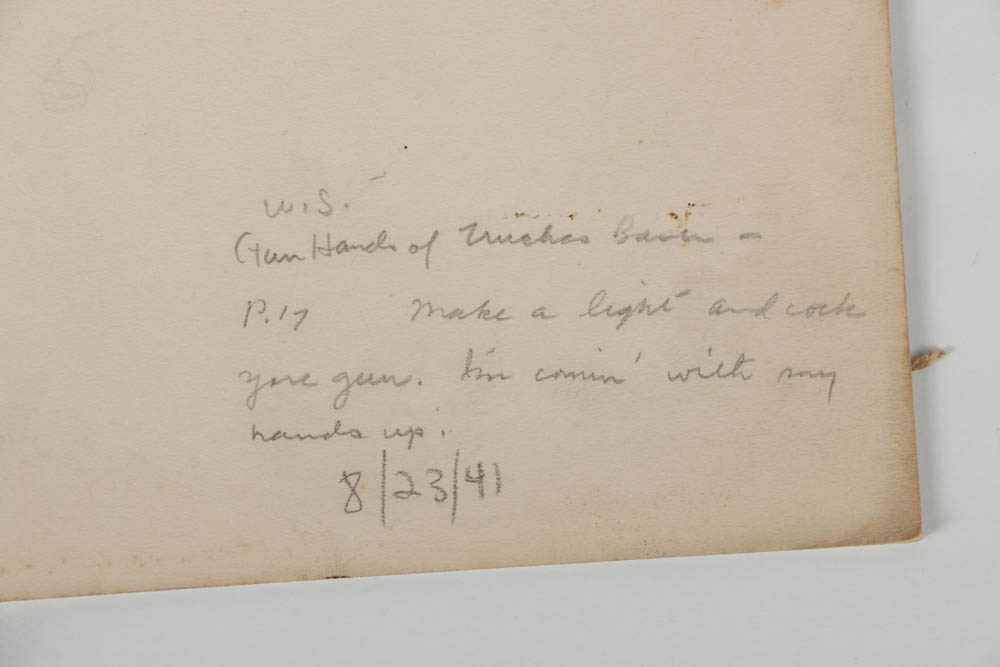 W.S.
Gun Hands of Truchas Basin -
P.17 Make a light and cock
yore gun. I'm comin' with my
hands up.
8/23/41